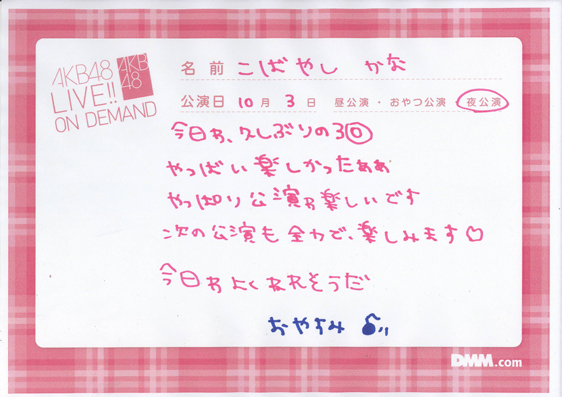 AKB48
LIVE!!
ON DEMAND
AKB
48
名前 こばやし かな
公演日 10月 3日 昼公演・おやつ公演・夜公演
今日わ、久しぶりの3回
やっばい楽しかったぁぁ
やっぱり公演わ楽しいです
次の公演も全力で、楽しみます♡
今日わよくねれそうだ
おやすみ
DMM.com